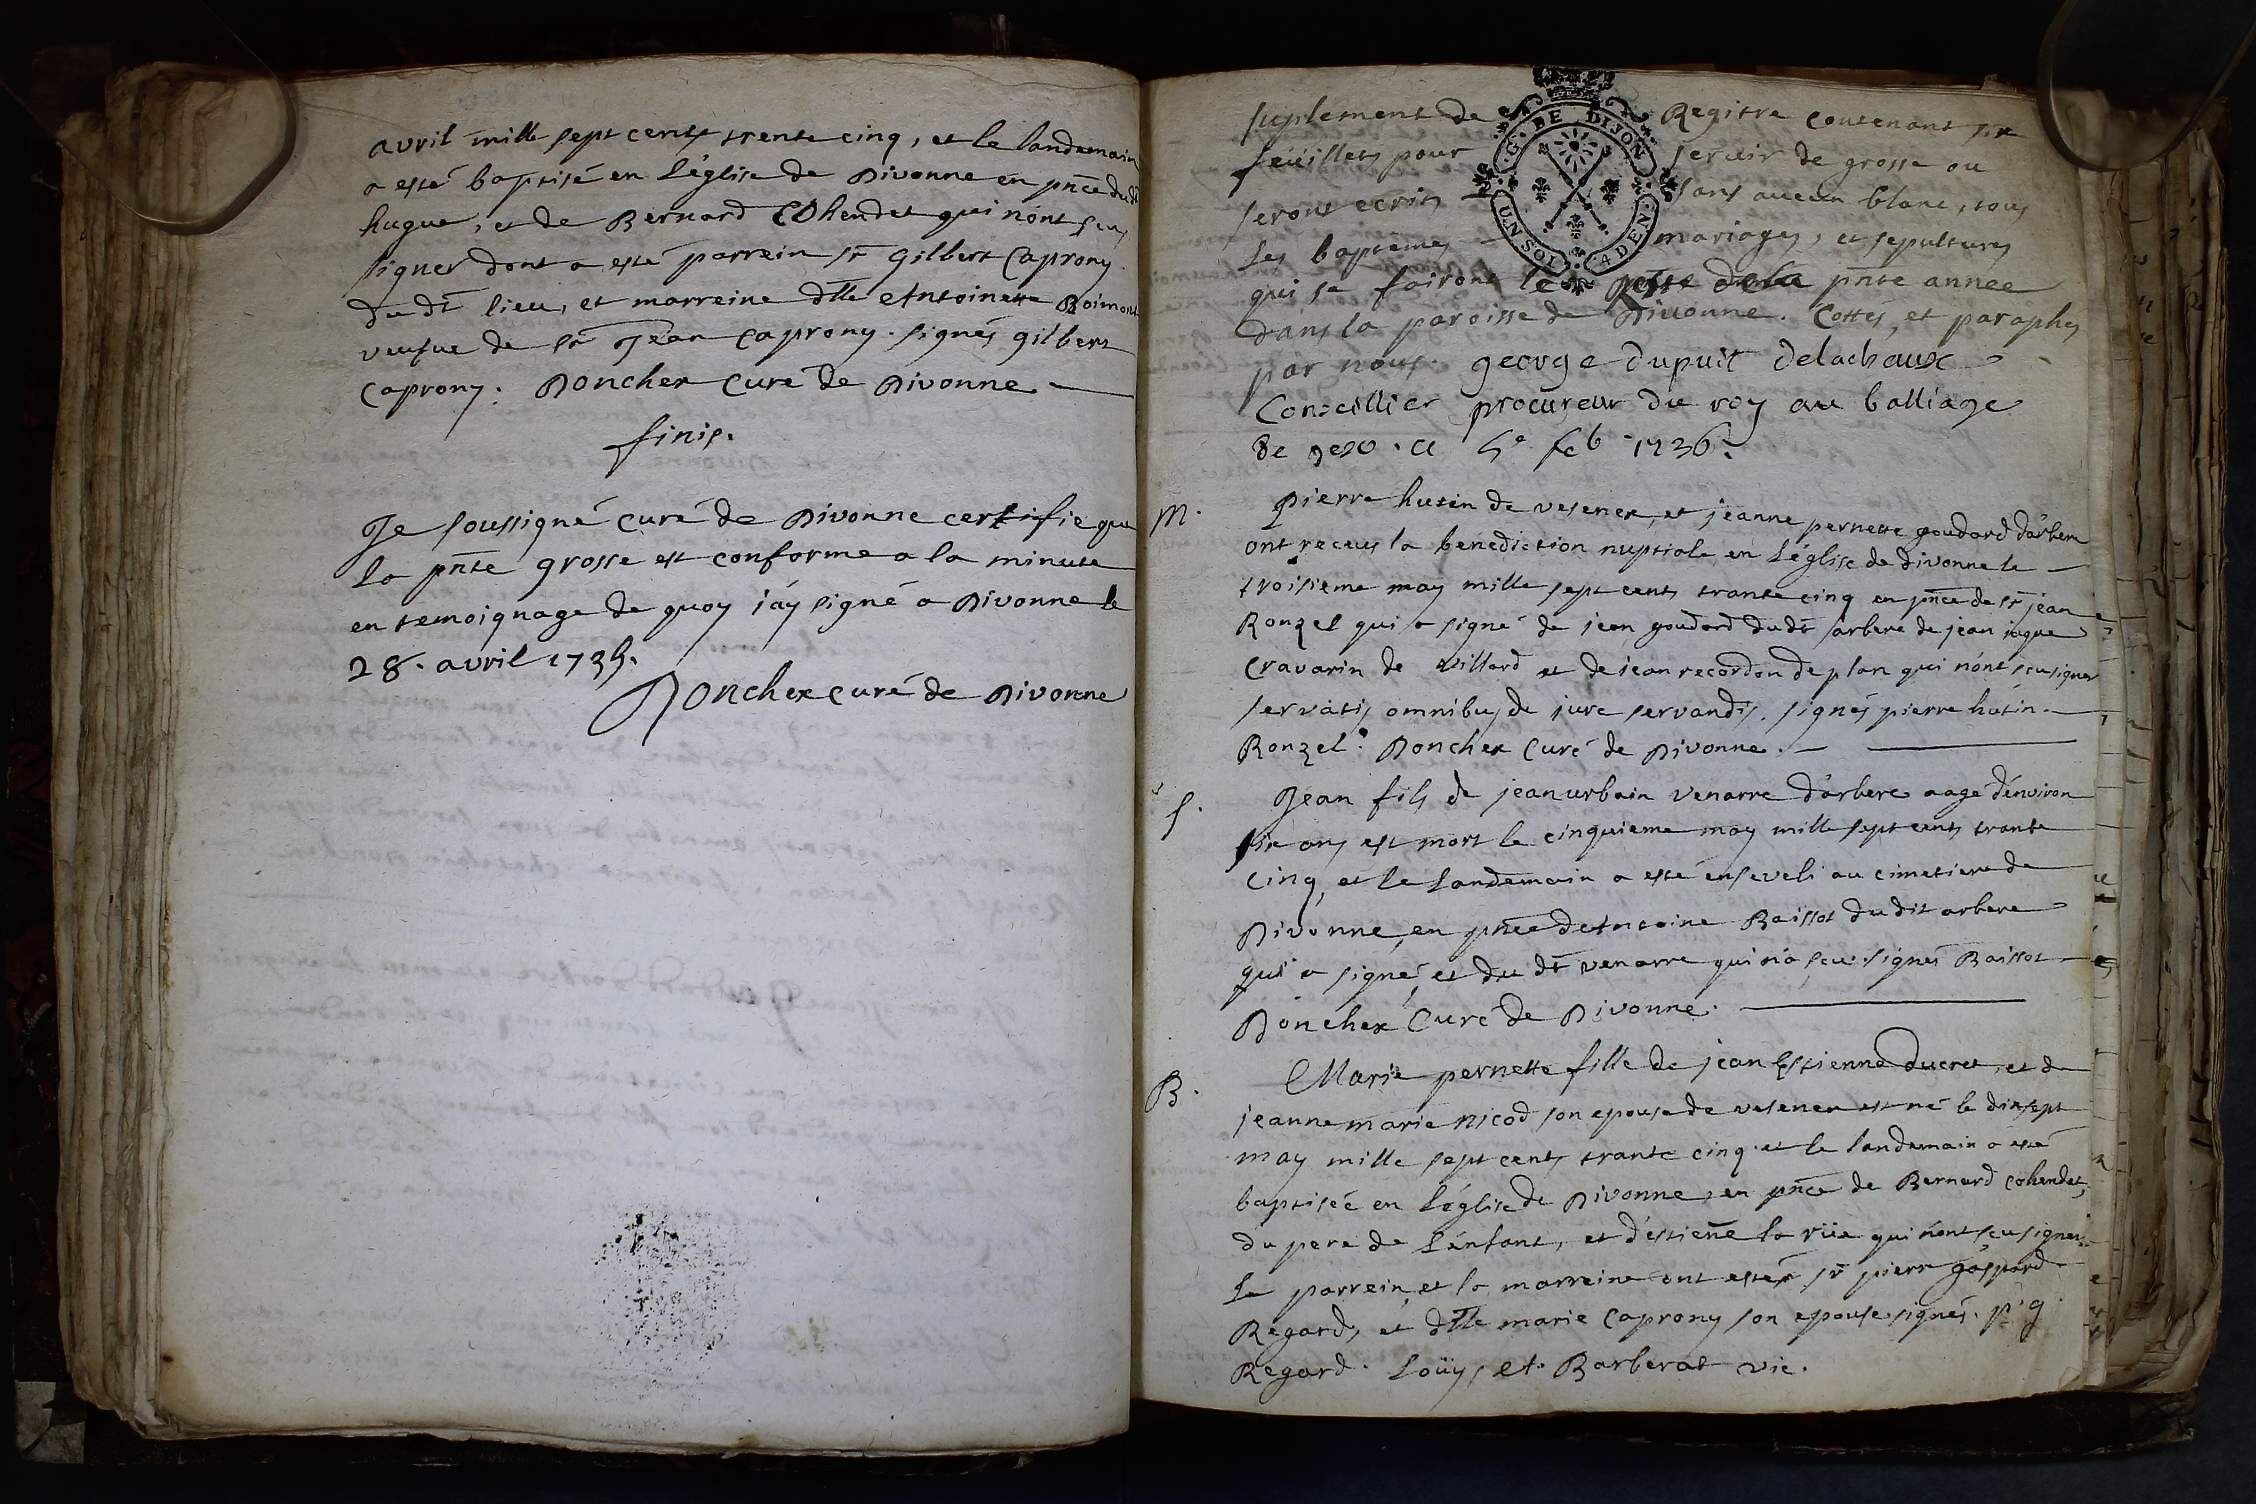 avril mille sept cents trente cinq, et le landemain
a esté baptisé en L'église de Divonne en pñce du dt
hugue, et de Bernard Cohendet qui nónt sçus
signer dont a esté parrein sr Gilbert Caprony
du dt lieu, et marreine dlle Antoinette Raimont
veufue de sr Jean Caprony. signés gilbert
Caprony. Poncher Curé de Divonne
finis.
Je soussigné curé de Divonne certifie que
la pñte grosse est conforme a la minute
en temoignage de quoy iáy signé a Divonne le
28. avril 1735.
Poncher curé de Divonne
suplement de Registre contenant six
feüillets pour servir de grosse ou
seront ecrits sans aucun blanc, tous
Les baptemes mariages, et sepultures
qui se fairont le reste de la pñte année
dans la paroisse de Divonne. Cottés, et paraphés
par nous. george dupuit delachaux
Conseillier procureur du roy au balliage
de gex. ce 5e feb 1736.
G. DE DIJON
UN SOL 4 DEN.
m. Pierre hutin de vesenex, et jeanne pernette goudard d'arbere
ont receus la benediction nuptiale en L'église de divonne le
troisieme may mille sept cents trante cinq en pñce de sr jean
Ronzel qui a signé de jean goudard du dt arbere de jean jaque
Cravarin de villard et de jean recordon de plan qui nónt sceu signer
servatis omnibus de jure servandis. signés pierre hutin.
Ronzel. Poncher Curé de Divonne.
s. Jean fils de jean urbain venarre d'arbere aage d'environ
six ans est mort le cinquieme may mille sept cents trante
cinq, et le landemain a esté enseveli au cimetiere de
Divonne, en pñce de Antoine Baissot du dit arbere
qui a signé, et du dt venarre qui n'a sceu. signés Baissot
Poncher Curé de Divonne.
B. Marie pernette fille de jean Estienne ducret, et de
jeanne marie nicod son epouse de vesenex est né le dix sept
may mille sept cents trante cinq et le landemain a esté
baptisée en L'église de Divonne, en pñce de Bernard Cohendet,
du pere de L'enfant, et d'estieñe la rüe qui nónt sceu signer.
Le parrein, et la marreine ont estés sr pierre gáspard
Regard, et dlle marie Caprony son epouse. signés. p. g
Regard. Loüys et. Barberat vic.